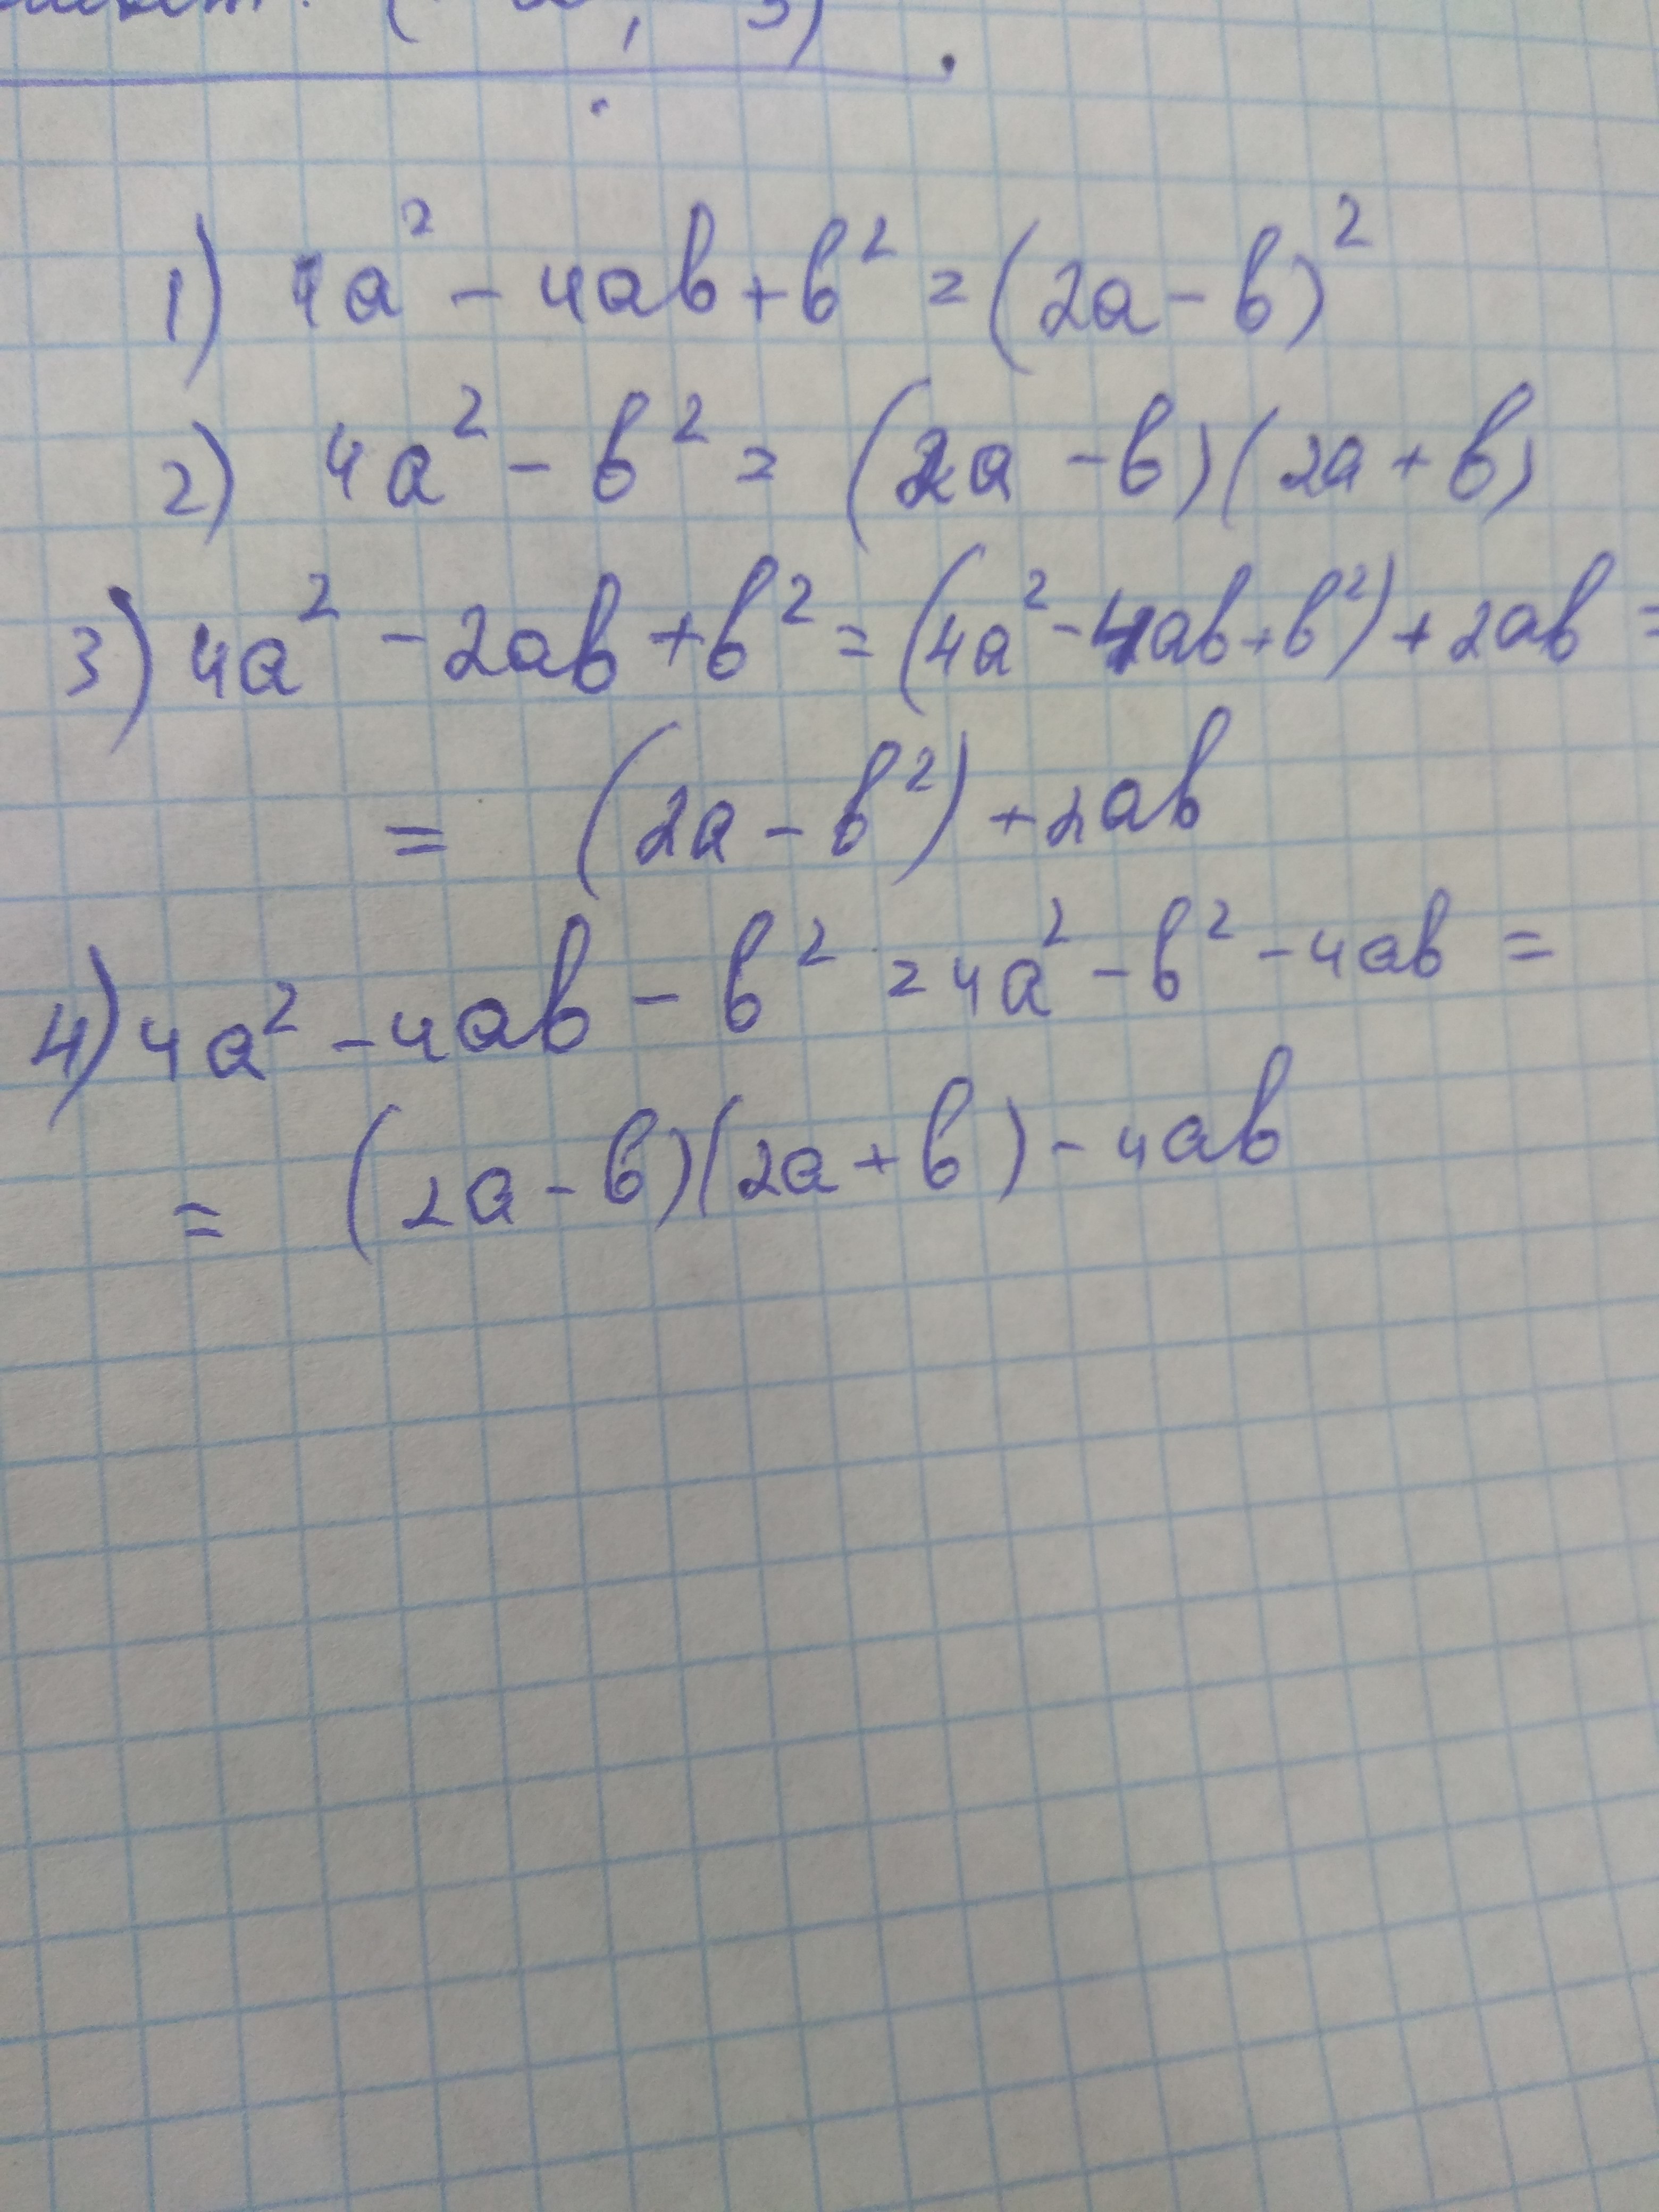 1) 4a² - 4ab + b² = (2a - b)²
2) 4a² - b² = (2a - b)(2a + b)
3) 4a² - 2ab + b² = (4a² - 4ab + b²) + 2ab =
= (2a - b²) + 2ab
4) 4a² - 4ab - b² = 4a² - b² - 4ab =
= (2a - b)(2a + b) - 4ab